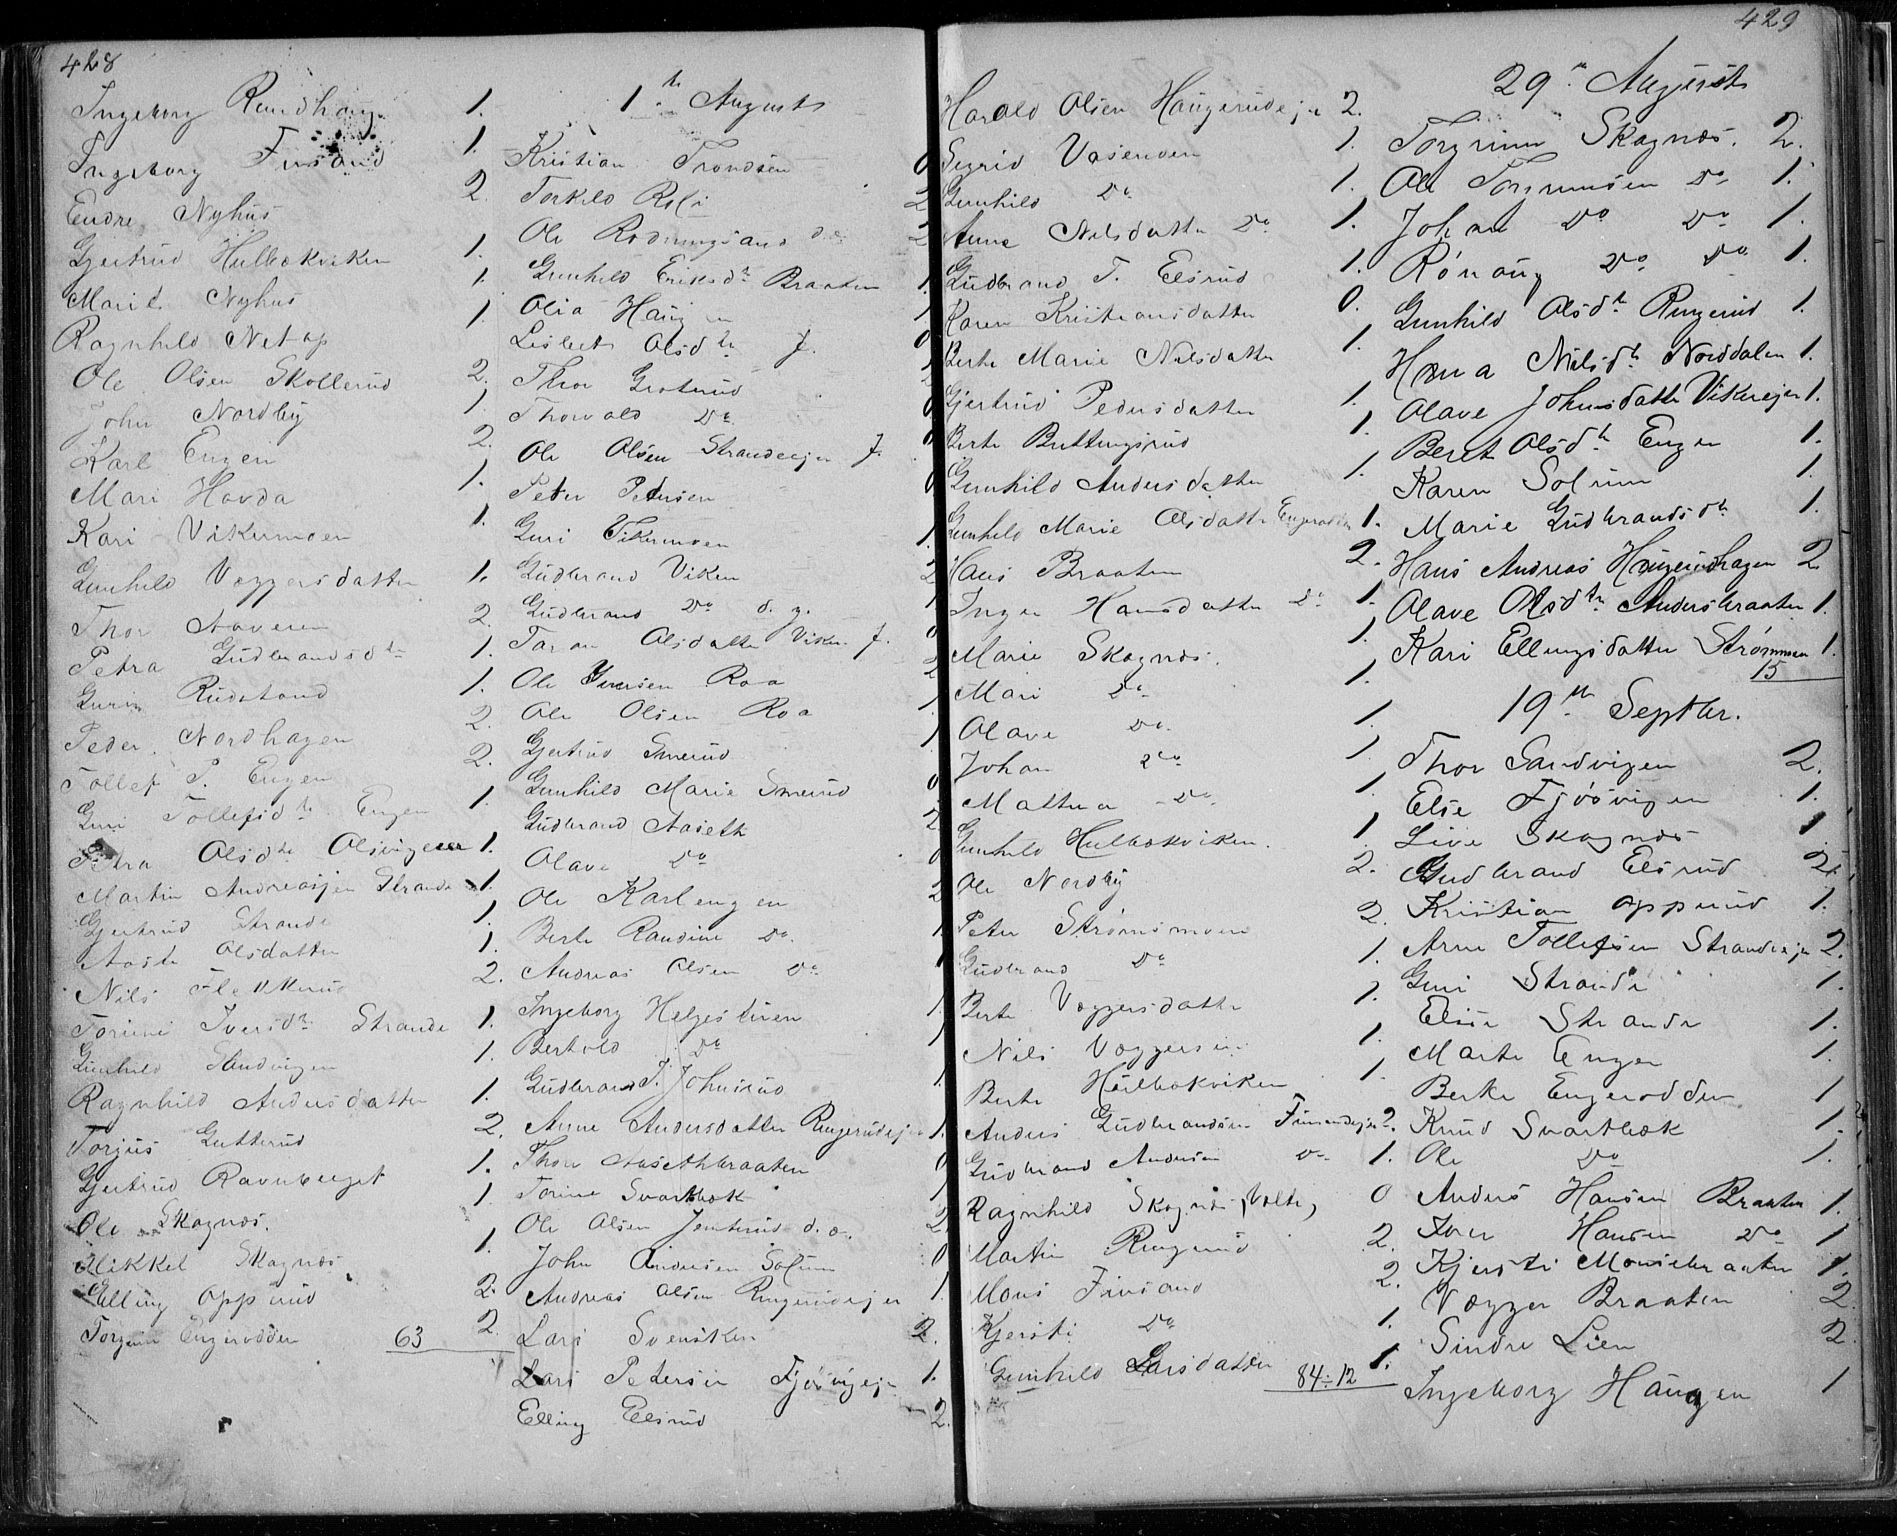 428
Ingeborg Rundhaug 1.
Ingeborg Finsand 1.
Endre Nyhus 2.
Gjertrud Hulbækviken 1.
Marit Nyhus 1.
Ragnhild Netop 1.
Ole Olsen Skollerud 2.
John Nordby 1
Karl Engen 2.
Mari Hovda 1.
Kari Vikermoen 1.
Gunhild Væggersdatter 1.
Thor Aaveren 2.
Petra Gudbrandsdtr 1.
Guri Rudstand 1.
Peder Nordhagen 2.
Tollef P. Engen 2.
Guri Tollefsdtr Engen 1.
Petra Olsdtr Olsvigeier 1.
Martin Andreasjen Strande 1.
Gjertrud Strande 1.
Aaste Olsdatter 1.
Nils Flaskerud 2.
Torine Iversdtr Strande 1.
Gunhild Sandvigen 1.
Ragnhild Andersdatter 1.
Torjus Gutterud 2.
Gjertrud Ravnberget 1.
Ole Skagnæs. 1.
Mikkel Skagnæs 1.
Elling Opperud 2.
Torgrim Engerodden 2.
63
1te August
Kristian Trondsen 0
Torkild Roli 2
Ole Rodningsand 2
Gunhild Eriksdtr Braaten 1.
Olia Haugen 1
Lisbet Olsdtr f. 0
Thor Grøterud 2
Thorvald Do 0
Ole Olsen Strandeejer f. 0
Peter Petersen 0
Guri Vikermoen 1.
Gudbrand Viken 2
Gudbrand Do d. y. 1
Taran Olsdatter Viken f. 0
Ole Iversen Roa 2
Ole Olsen Roa 1
Gjertrud Smerud 1
Gunhild Marie Smerud 0
Gudbrand Aaseth 2
Olave Do 0
Ole Karlengen 2
Berte Randine Do. 1
Andreas Olsen Do 1
Ingeborg Helgestuen 1.
Berthold Do 1
Gudbrand T. Johnsrud 1.
Anne Andersdatter Ringerudejer 1.
Thor Aasethbraaten 0
Torine Svartbæk 1
Ole Olsen Jonterud d. æ. 2
John Andersen Solum 0
Andreas Olsen Ringerudejer 1.
Lars Svensken 2.
Lars Petersen Fjøsvigejer 1.
Elling Elsrud 2.
429
Harald Olsen Haugerudejer 2.
Sigrid Vasenden 1.
Gunhild Do 1.
Anne Nilsdatter Do 1.
Gudbrand T. Elsrud 1.
Karen Kristiansdatter 0.
Berte Marie Nilsdatter 1.
Gjertrud Pedersdatter 1.
Berte Buttingsrud 1.
Gunhild Andersdatter 1.
Gunhild Marie Olsdatter Engerodden 1.
Hans Braaten 2.
Inger Hansdatter Do 1.
Marie Skagnæs. 1.
Mari Do 1.
Olave Do. 1.
Johan Do 1.
Mathea Do. 1
Gunhild Hulbækviken. 1.
Ole Nordby 2.
Peter Strømsmoen 2.
Gudbrand Do 1.
Berte Væggersdatter 1.
Nils Væggersen 1.
Berte Hulbækviken 1.
Anders Gudbrandsen Finsandejer 2.
Gudbrand Andersen Do 1.
Ragnhild Skagnæs 0
Martin Ringerud 2.
Mons Finsand 2.
Kjersti Do 1.
Gunhild Larsdatter 1.
84÷12
29te August
Torgrim Skagnæs. 2.
Ole Torgrimsen Do 1.
Johan Do Do 1.
Rønaug Do Do 1.
Gunhild Olsdtr Ringerud 1.
Anna Nilsdtr Norddalen 1.
Olave Johnsdatter Vikerejer 1.
Beret Olsdtr Engen 1.
Karen Solum 1.
Marie Gudbrandsdtr 1.
Hans Andreas Haugerudhagen 2
Olave Olsdtr Andersbraaten 1.
Kari Ellingsdatter Strømmen 1.
15
19th Septbr.
Thor Sandvigen 2.
Else Fjøsvigen 1.
Live Skagnæs 1.
Gudbrand Elsrud 2.
Kristian Opperud 1.
Arne Tollefsen Strandeejer 2.
Guri Strande 1.
Elise Strande 1.
Marte Engen 1.
Berte Engerodden 1
Knud Svartbæk 1.
Ole Do 1.
Anders Hansen Braaten 1.
Iver Hansen Do 1
Kjersti Monsebraaten 1.
Vægger Braaten 2.
Sindre Lien 2
Ingeborg Haugen 1